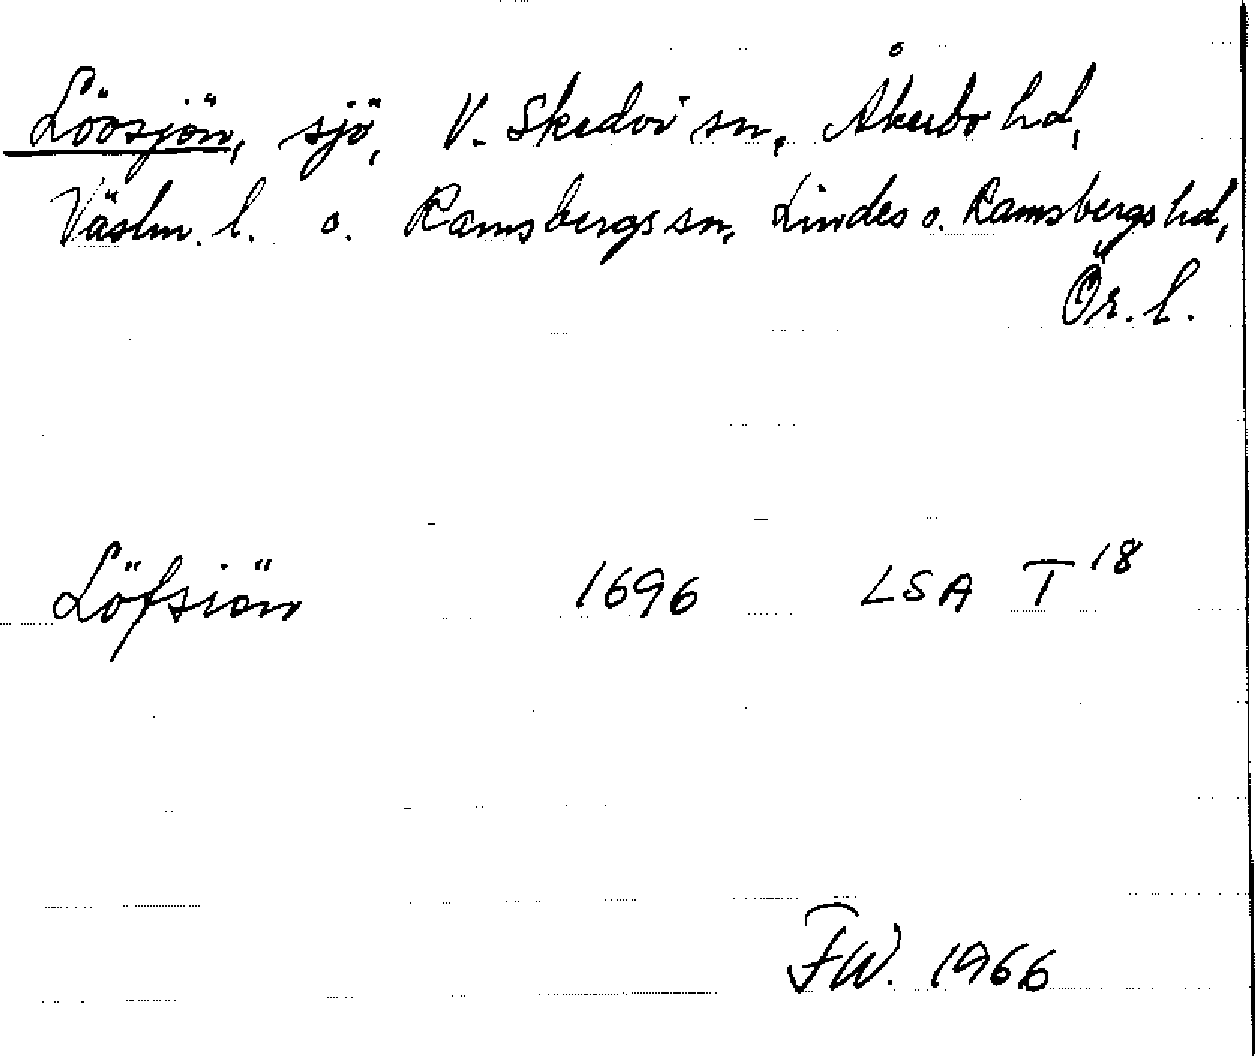 Lövsjön, sjö, V. Skedvi sn, Åkerbo hd,
Västm. l. o. Ramsbergs sn, Lindes o. Ramsbergs hd,
Ör. l.
Löfsiön 1696 LSA T 18
FW. 1966